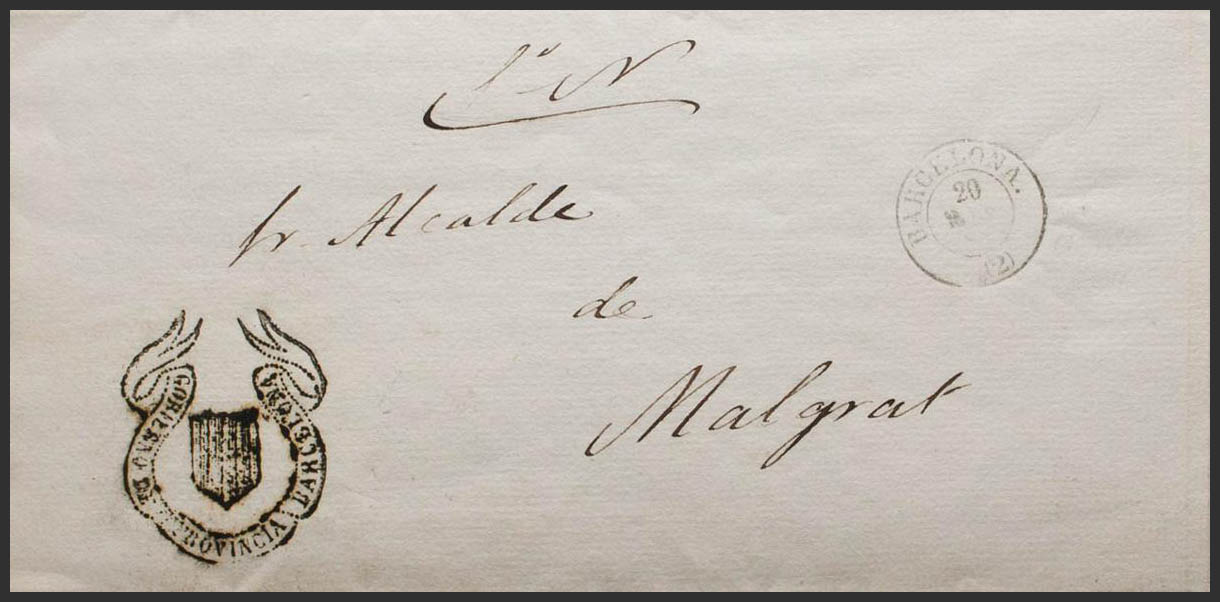 Sr. Alcalde
de
Malgrat
BARCELONA.
20
(2)
GOBIERNO DE PROVINCIA BARCELONA